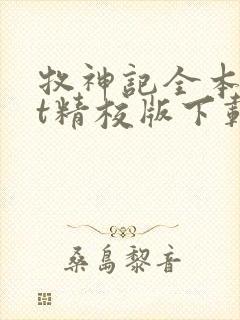 牧神記全本
t精校版下載
桑島黎音